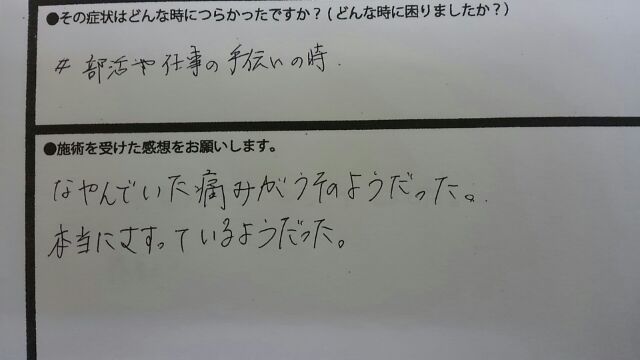 ●その症状はどんな時につらかったですか?(どんな時に困りましたか?)
# 部活や仕事の手伝いの時.
●施術を受けた感想をお願いします。
なやんでいた痛みがウソのようだった。
本当にさすっているようだった。